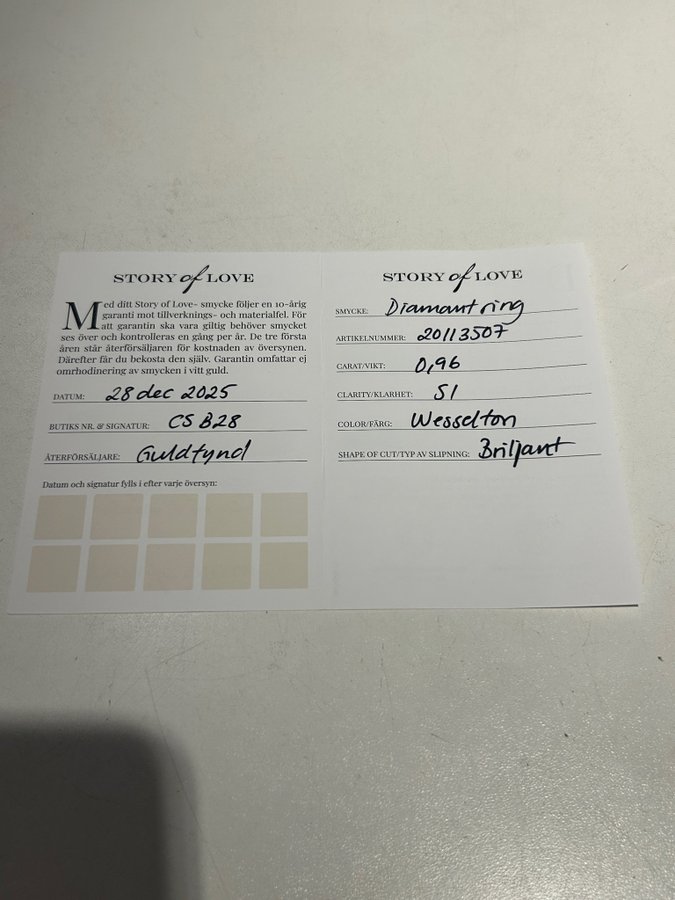 STORY of LOVE
Med ditt Story of Love- smycke följer en 10-årig
garanti mot tillverknings- och materialfel. För
att garantin ska vara giltig behöver smycket
ses över och kontrolleras en gång per år. De tre första
åren står återförsäljaren för kostnaden av översynen.
Därefter får du bekosta den själv. Garantin omfattar ej
omrhodinering av smycken i vitt guld.
DATUM: 28 dec 2025
BUTIKS NR. & SIGNATUR: CS B28
ÅTERFÖRSÄLJARE: Guldfynd
Datum och signatur fylls i efter varje översyn:
STORY of LOVE
SMYCKE: Diamant ring
ARTIKELNUMMER: 20113507
CARAT/VIKT: 0,96
CLARITY/KLARHET: SI
COLOR/FÄRG: Wesselton
SHAPE OF CUT/TYP AV SLIPNING: Briljant